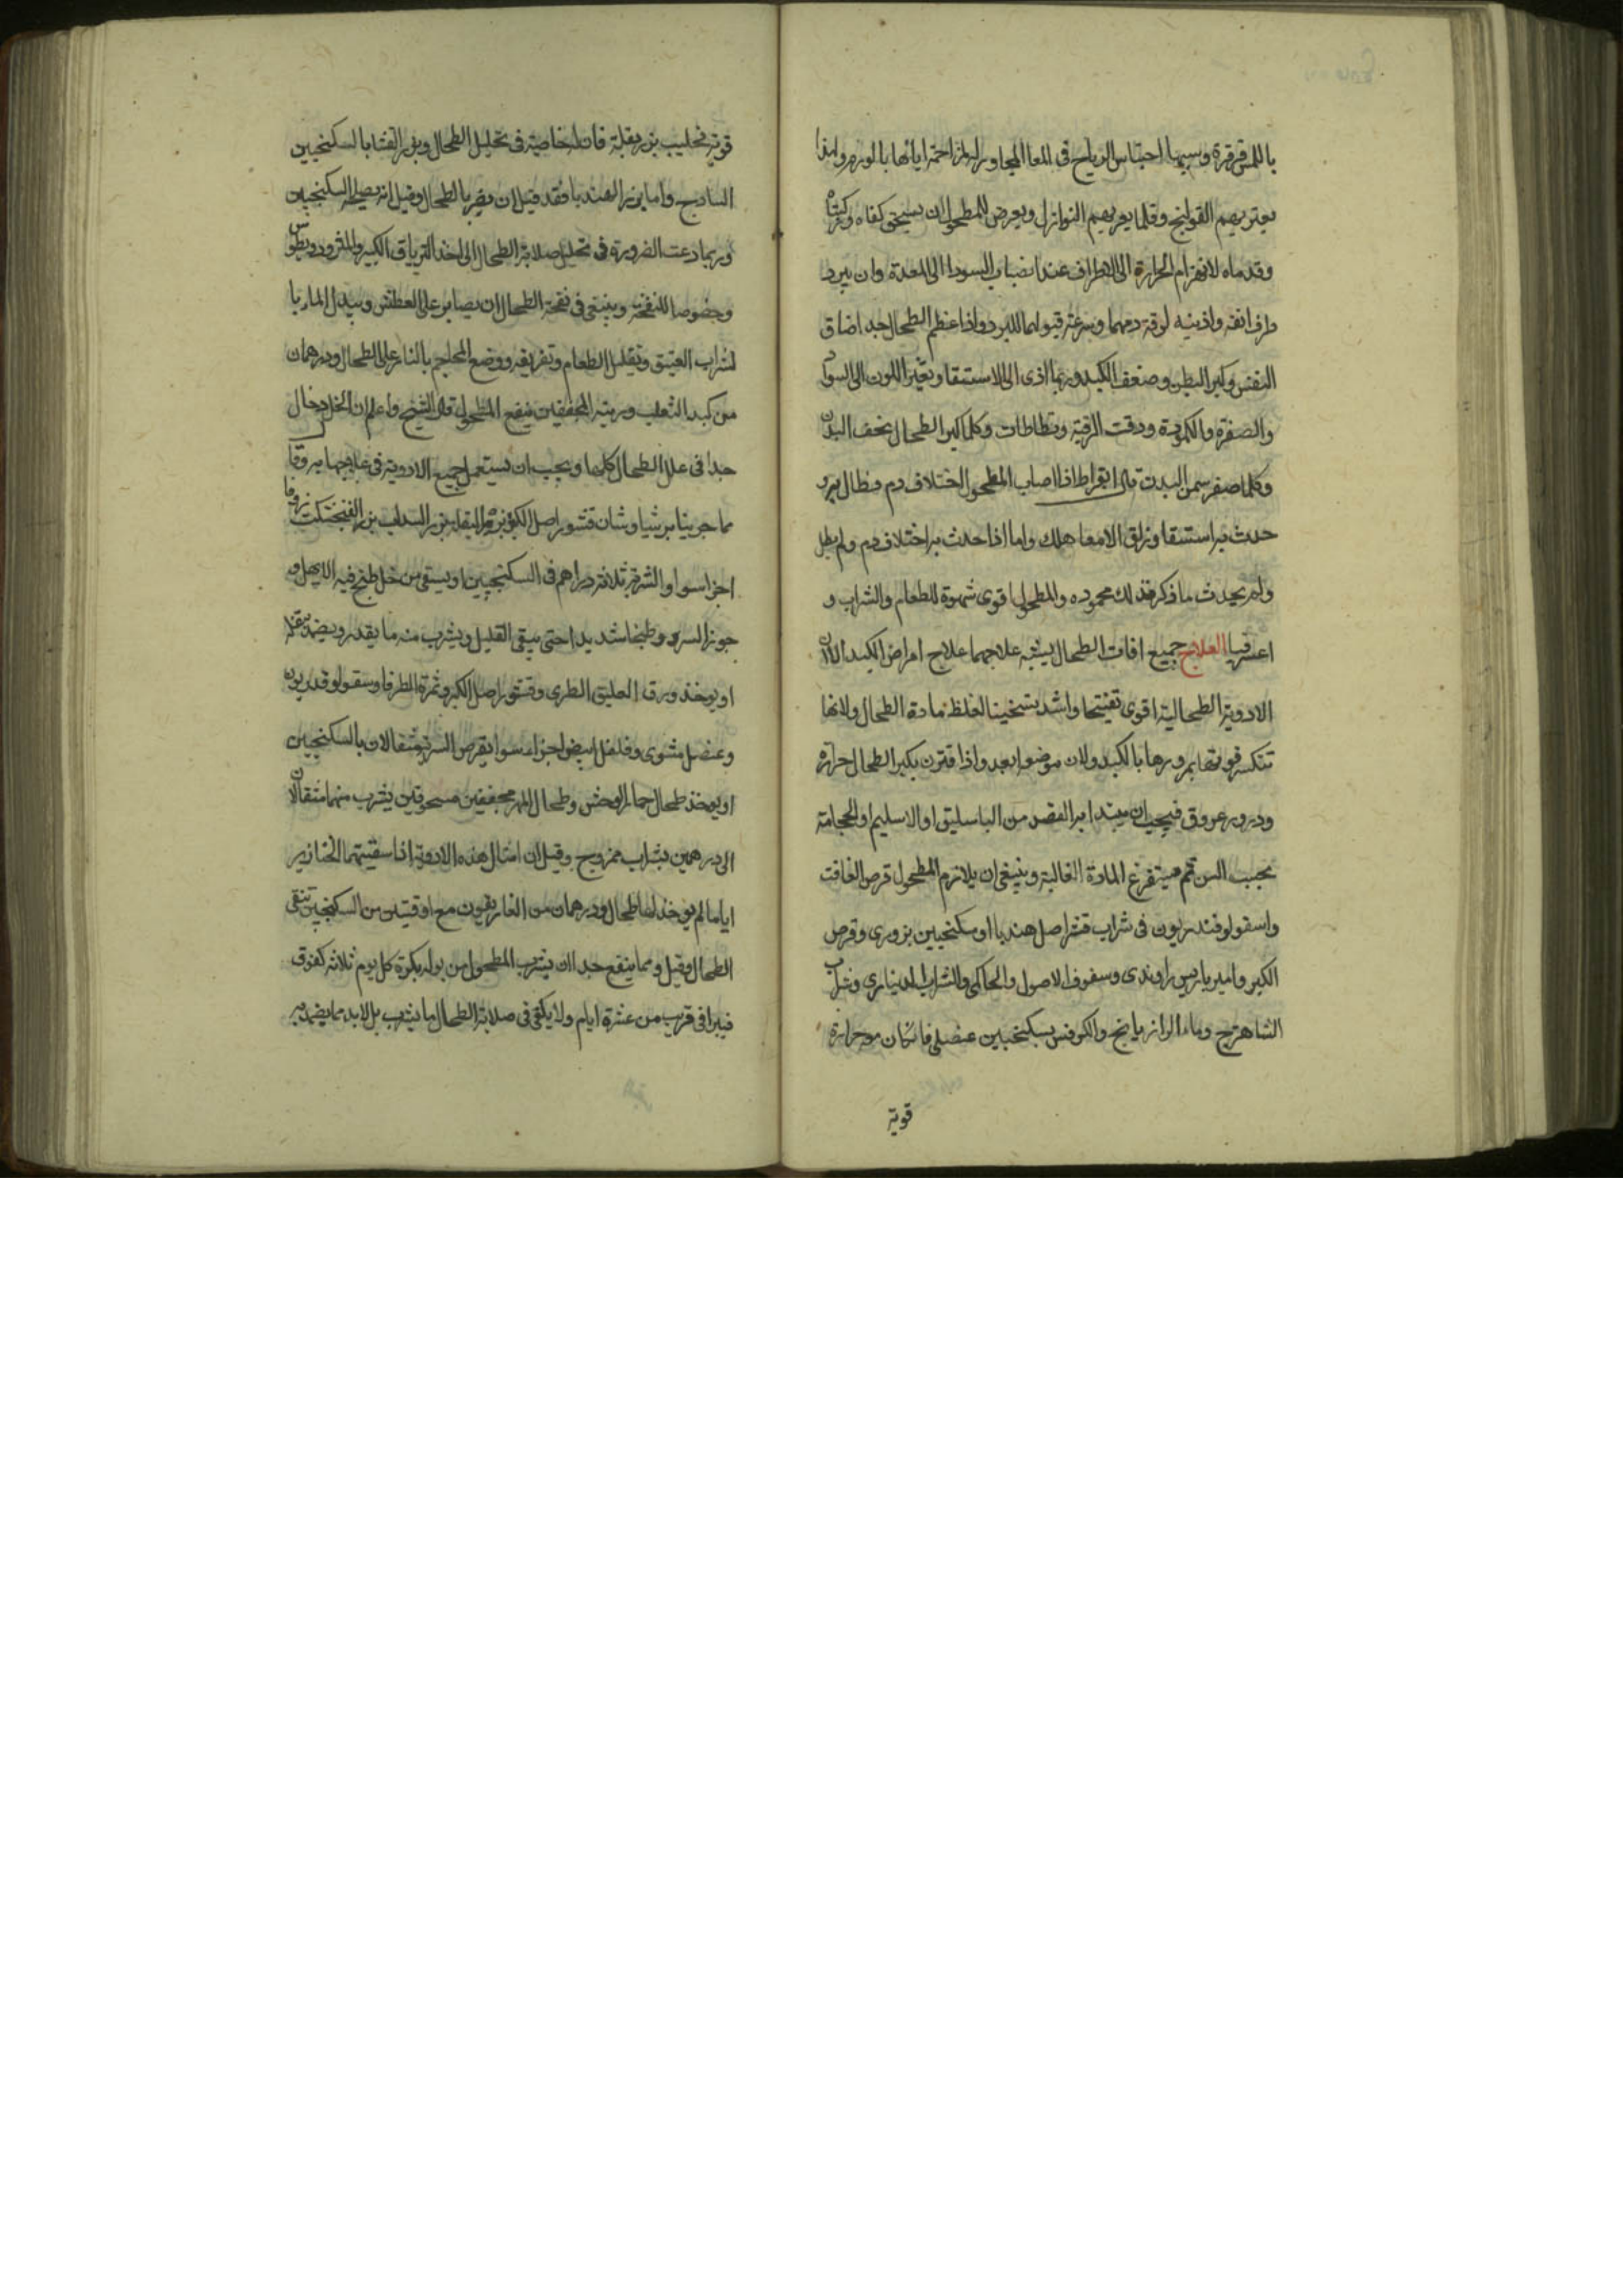 باللمس قرقرة وسببها احتباس الرياح في المعا المجاور له لمزاحمته اياها بالورم ولهذا
يعتريهم القولنج وقلما يعريهم النوازل ويعرض للمطحول ان يسخن كفاه وركبتاه
وقدماه لانهزام الحرارة الى الاطراف عند انصباب السودا الى المعدة وان يبرد
طرف انفه واذنيه لرقة دمهما وسرعة قبولهما للبرد واذا عظم الطحال جدا ضاق
النفس وكبر البطن وضعف الكبد وربما ادى الى الاستسقا وتغير اللون الى السواد
والصفرة والكمودة ودقت الرقبة وتطاطات وكلما كبر الطحال نحف البدن
وكلما صغر سمن البدن قال ابقراط اذا اصاب المطحول اختلاف دم فطال به و
حدث به استسقا وزلق الامعا هلك واما اذا حدث به اختلاف دم ولم يطل
ولم يحدث ما ذكر فذلك محموده والمطحول اقوى شهوة للطعام والشراب و
العلاج جميع افات الطحال يشبه علاجها علاج امراض الكبد الا ان
الادوية الطحالية اقوى تفتيحا واشد تسخينا لغلظ مادة الطحال ولانها
تنكسر قوتها بمرورها بالكبد ولان موضعها بعد واذا اقترن بكبر الطحال حرارة
ودرور عروق فيجب ان يبتدا بالفصد من الباسليق او الاسليم او الحجامة
بحسب السن ثم يستفرغ المادة الغالبة وينبغي ان يلازم المطحول قرص الغافت
واسقولوقندريون في شراب قشر اصل هندبا او سكنجبين بزوري وقرص
الكبر وامير باريس راوندي وسفوف الاصول والحاكي والشراب الديناري وشراب
الشاهترج وماء الرازيانج والكرفس بسكنجبين عنصلي فان كان مع حرارة
قوية
قوية فحليب بزر بقلة فان له خاصية في تحليل الطحال وبزر القثا بالسكنجبين
الساذج واما بزر الهندبا فقد قيل ان يضر بالطحال وقيل انه يصلحه السكنجبين
وربما دعت الضرورة في تحليل صلابة الطحال الى اخذ الترياق الكبير والمثروديطوس
وخصوصا للنفخة وينبغي في نفخة الطحال ان يصابر على العطش ويبدل الماء با
لشراب العتيق وتقليل الطعام وتفريقه ووضع المحاجم بالنار على الطحال ودرهمان
من كبد الثعلب وريته المجففين ينفع المطحول قال الشيخ واعلم ان الخل دخال
جدا في علل الطحال كلها ويجب ان يستعمل جميع الادوية في علاجها به وقا
مما جربنا برشياوشان قشور اصل الكبر بزر البقلة بزر السداب بزر الفنجنكشت زوفا
اجزا سوا والشربة ثلاثة دراهم في السكنجبين او يسقى من خل طبخ فيه الابهل و
جوز السرو طبخا شديدا حتى يبقى القليل ويشرب منه ما يقدر ويضمد بثفله
او يوخذ ورق العليق الطري وقشور اصل الكبر وثمرة الطرفا وسقولوقندريون
وعنصل مشوي وفلفل ابيض اجزاء سوا يقرص الشربة مثقالان بالسكنجبين
او يوخذ طحال حمار الوحش وطحال المهر مجففين مسحوقين يشرب منهما مثقالان
الى درهمين بشراب ممزوج وقيل ان امثال هذه الادوية اذا سقيتها الخنازير
اياما لم يوخذ لها طحال ودرهمان من الغاريقون مع اوقيتين من السكنجبين تنقي
الطحال وقيل ومما ينفع جدا ان يشرب المطحول من بوله بكرة كل يوم ثلاثه كفوف
فيبرا في قريب من عشرة ايام ولا يكتفى في صلابة الطحال ما يشرب بل لا بد مما يضمد به